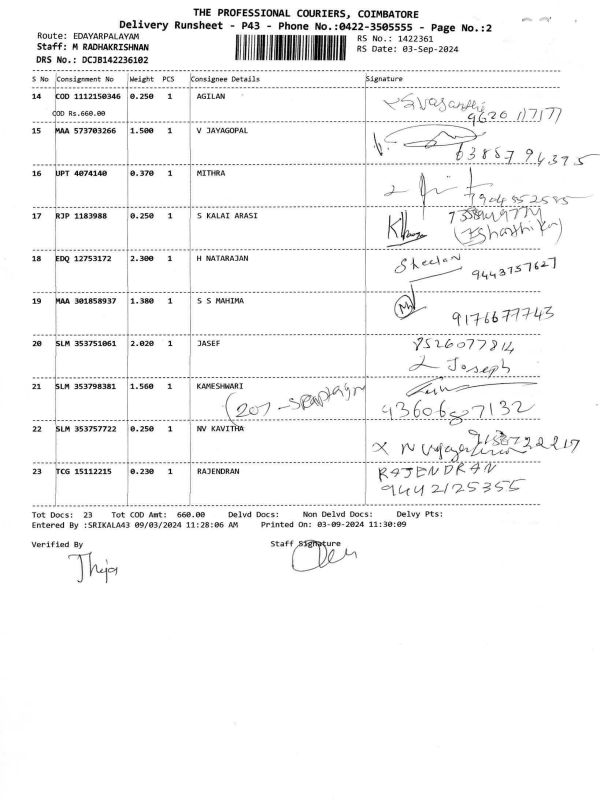 THE PROFESSIONAL COURIERS, COIMBATORE
Delivery Runsheet - P43 - Phone No.:0422-3505555 - Page No.:2
Route: EDAYARPALAYAM RS No.: 1422361
Staff: M RADHAKRISHNAN RS Date: 03-Sep-2024
DRS No.: DCJB142236102
S No Consignment No Weight PCS Consignee Details Signature
14 COD 1112150346 0.250 1 AGILAN
COD Rs.660.00 9620 117177
15 MAA 573703266 1.500 1 V JAYAGOPAL
63857 94375
16 UPT 4074140 0.370 1 MITHRA
7904852585
17 RJP 1183988 0.250 1 S KALAI ARASI
18 EDQ 12753172 2.300 1 H NATARAJAN
9443757627
19 MAA 301858937 1.380 1 S S MAHIMA
9176677743
20 SLM 353751061 2.020 1 JASEF 8526077814
Joseph
21 SLM 353798381 1.560 1 KAMESHWARI
9360687132
22 SLM 353757722 0.250 1 NV KAVITHA
23 TCG 15112215 0.230 1 RAJENDRAN RAJENDRAN
9442125355
Tot Docs: 23 Tot COD Amt: 660.00 Delvd Docs: Non Delvd Docs: Delvy Pts:
Entered By :SRIKALA43 09/03/2024 11:28:06 AM Printed On: 03-09-2024 11:30:09
Verified By Staff Signature